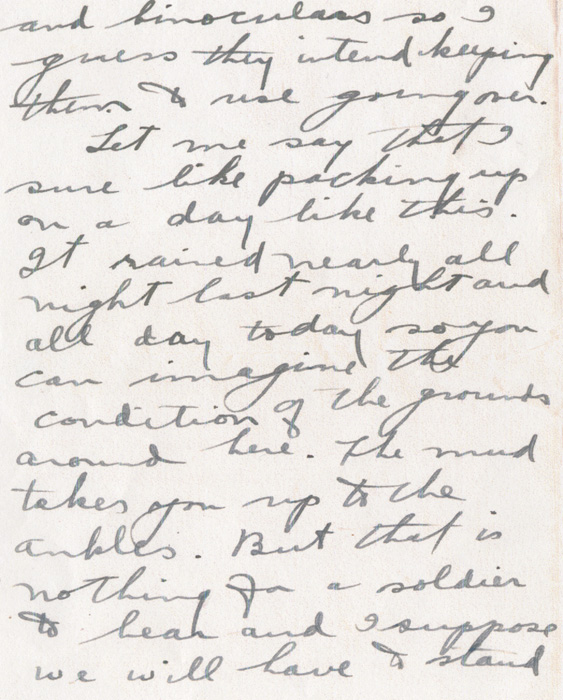 and binoculars so I
guess they intend keeping
them to use going over.
Let me say that I
sure like packing up
on a day like this.
It rained nearly all
night last night and
all day today so you
can imagine the
condition of the grounds
around here. The mud
takes you up to the
ankles. But that is
nothing for a soldier
to bear and I suppose
we will have to stand